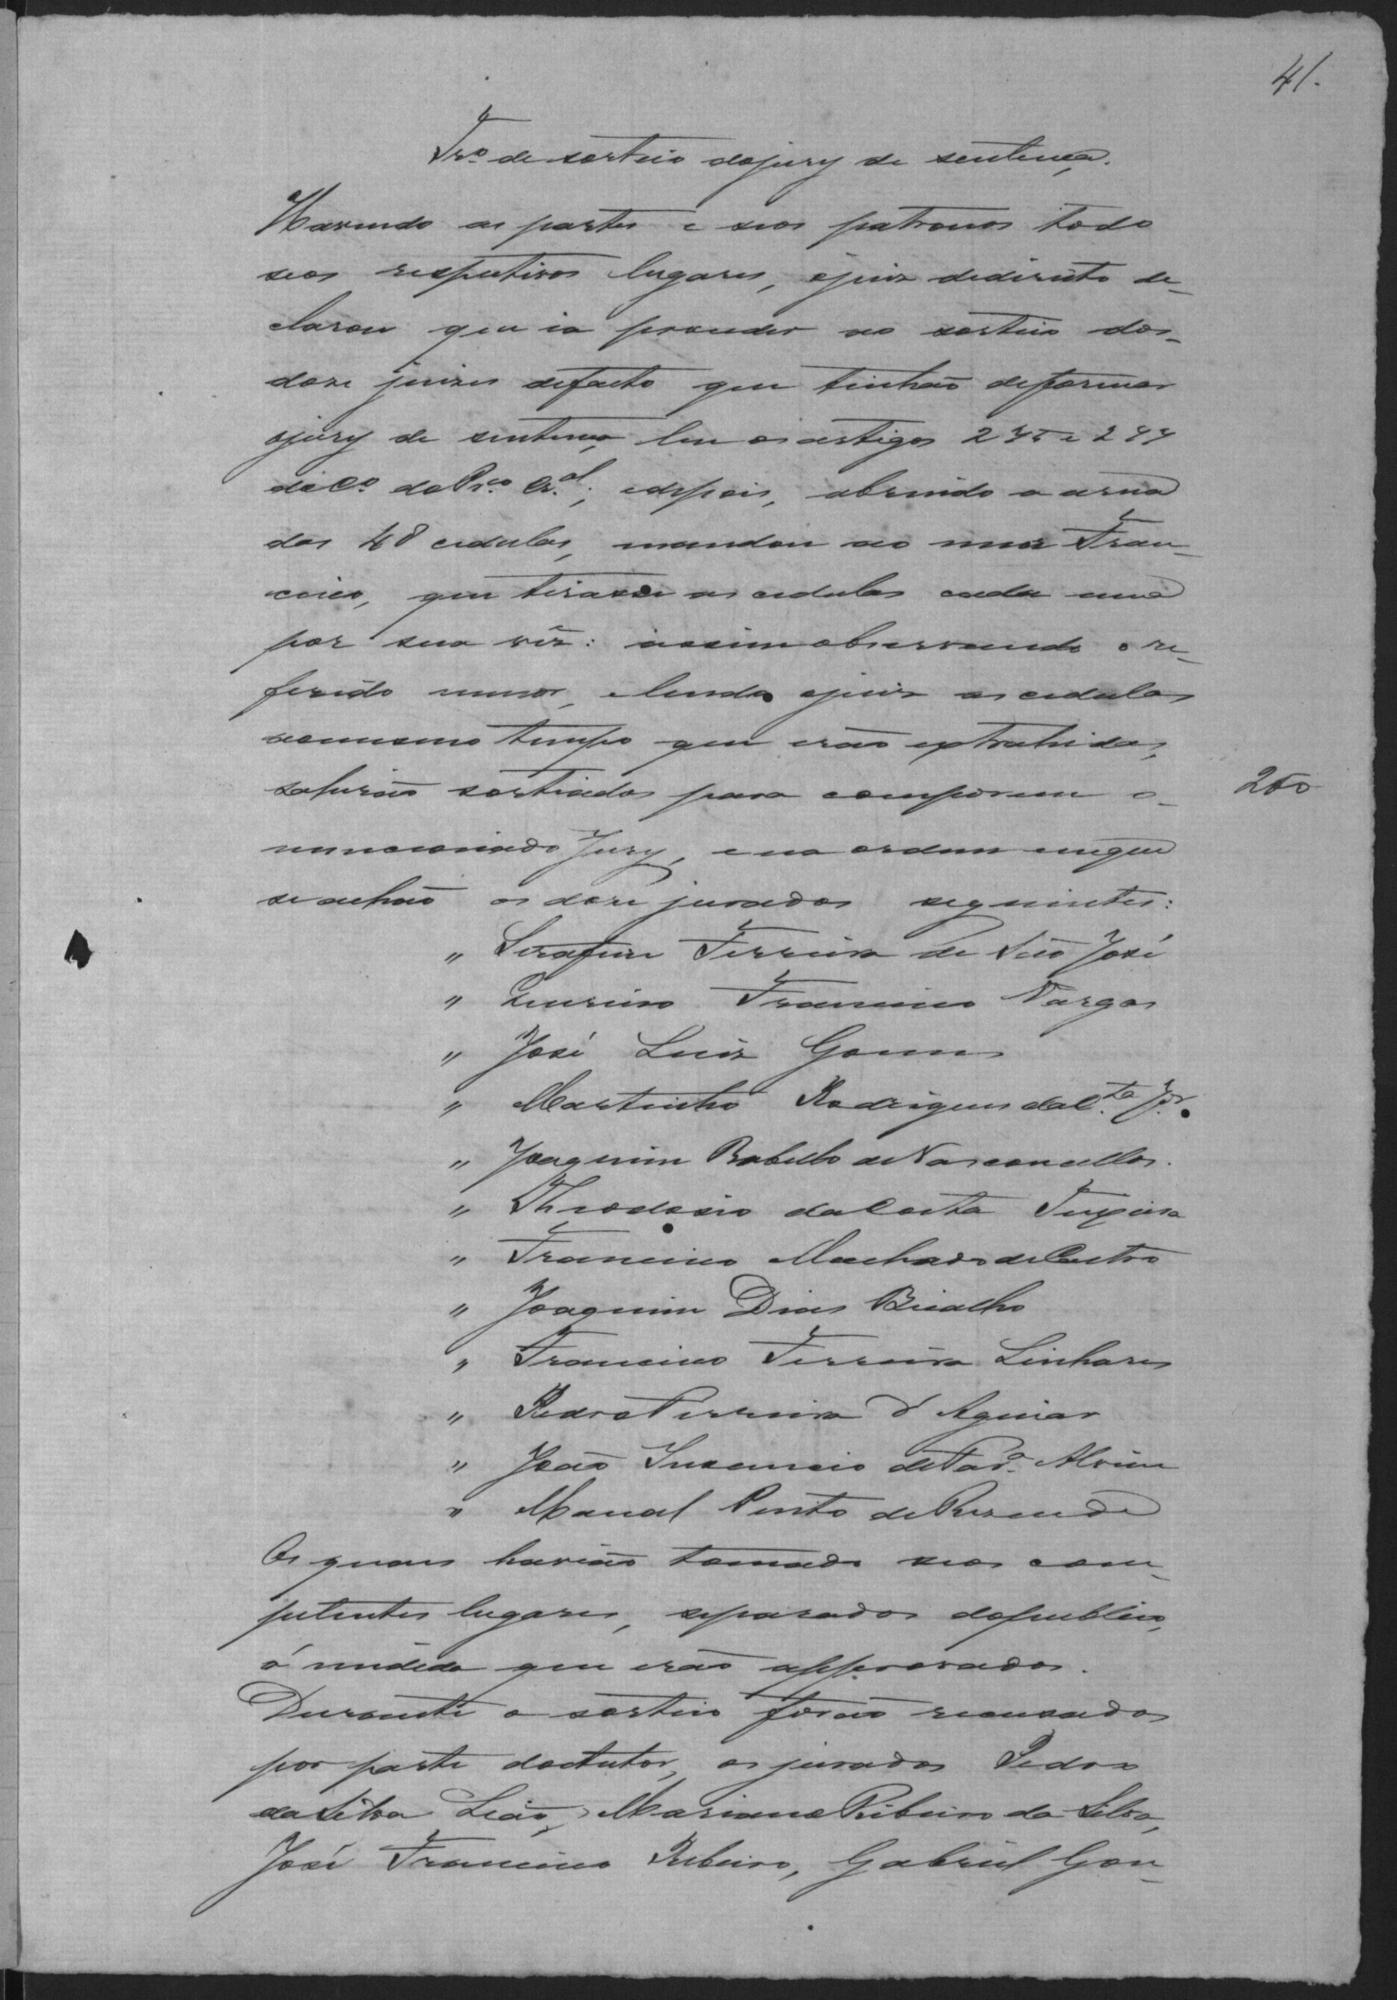 41.
Tr.o de sorteio do jury de sentença.
Havendo as partes e seos patronos todo
seos respectivos lugares, o juiz de direito de-
clarou que ia proceder ao sorteio dos
doze juizes de facto que tinhão de formar
o jury de sentença, leu os artigos 275 e 277
do Co. do Pr.co Cr.al; e depois, abrindo a urna
das 48 cedulas, mandou ao menor Fran-
cisco, que tirasse as cedulas cada uma
por sua vêz: assim observando o re-
ferido menor, e lendo o juiz as cedulas
ao mesmo tempo que erão extrahidas,
sahirão sorteados para comporem o 200
mencionado Jury, e na ordem em que
se achão os doze jurados seguintes:
" Serafim Ferreira de São José
" Francisco Vargas
" José Luiz Gomes
" Martinho Rodrigues da C.ta J.or
" Joaquim Rabello de Vasconcellos.
" Theodosio da Costa Teixeira
" Francisco Machado de Castro
" Joaquim Dias Bicalho
" Francisco Ferreira Linhares
" Pedro Ferreira d'Aguiar
" João Innocencio de Alvim
" Manoel Pinto de Rezende
Os quaes havião tomado seos com-
petentes lugares, separados do publico,
á medida que erão approvados.
Durante o sorteio forão recusados
por parte do autor, os jurados Pedro
da Silva Leão, Mariano Ribeiro da Silva,
José Francisco Ribeiro, Gabriel Gon-